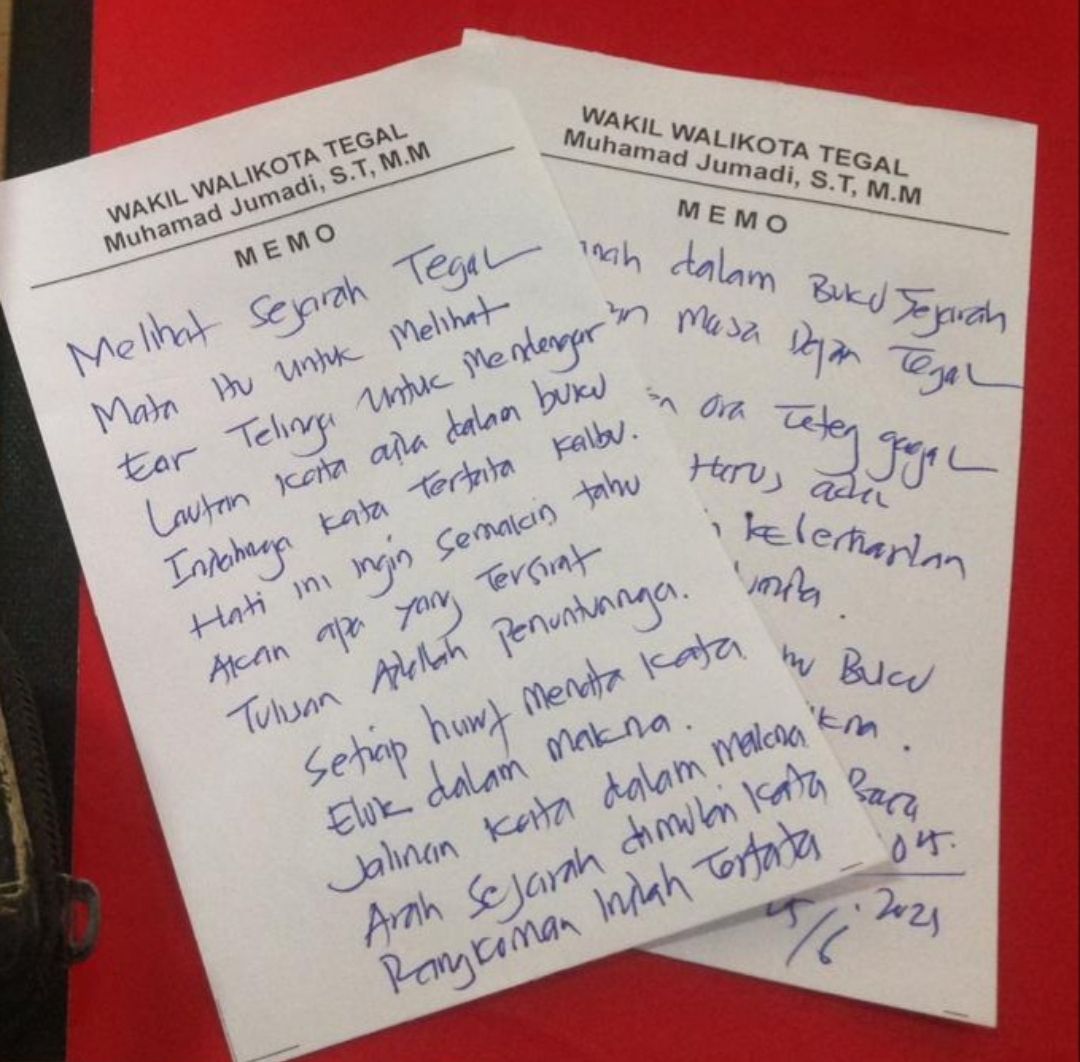 WAKIL WALIKOTA TEGAL
Muhamad Jumadi, S.T, M.M
MEMO
Melihat Sejarah Tegal
Mata itu untuk Melihat
Ear Telinga Untuk Mendengar
Lautan Kata ada dalam buku
Indahnya Kata Tertata Kalbu.
Hati ini ingin Semakin tahu
Akan apa yang Tersirat
Tulisan Adalah Penuntunnya.
Setiap huruf Menata Kata
Elok dalam makna.
Jalinan Kata dalam makna
Arah Sejarah dimulai Kata
Rangkuman Indah Tertata
WAKIL WALIKOTA TEGAL
Muhamad Jumadi, S.T, M.M
MEMO
dalam Buku Sejarah
Masa Depan Tegal
ora Teteg gagal
Harus adil
Buku
Bara
04.
/6 2021